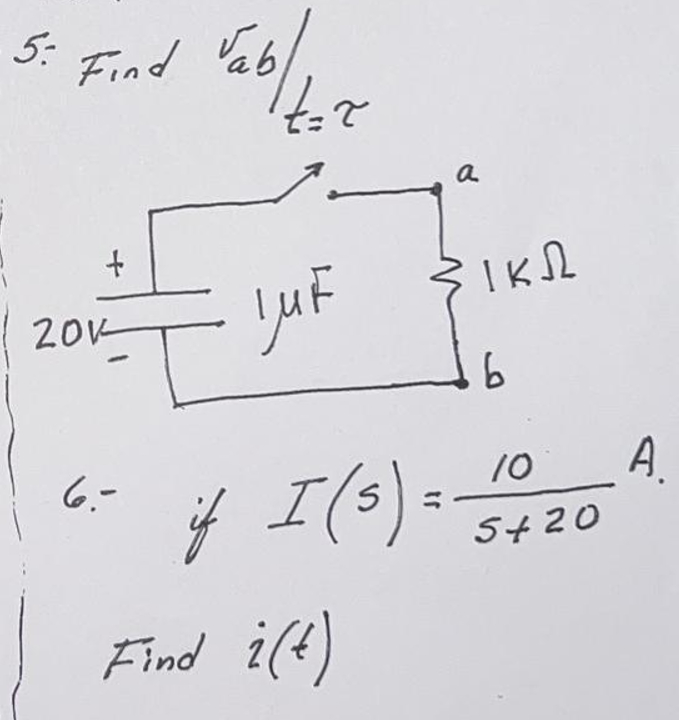 5.- Find Vab/t=τ
a
+
1μF
1KΩ
20V
-
b
6.- if I(s) = 10/s+20 A.
Find i(t)